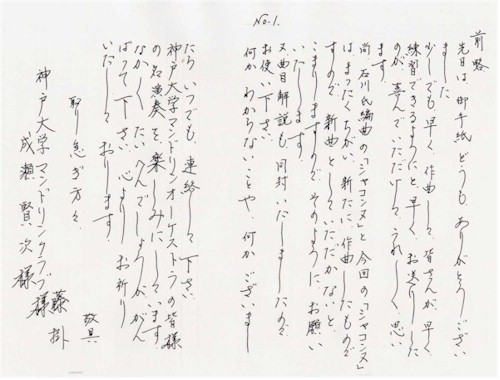 No.1.
前略
先日は御手紙どうも、ありがとうござい
ました
少しでも早く、作曲して、皆さんが、早く
練習できるようにと、早く、お送りした
のが、喜んでいただけて、うれしく、思い
ます
尚、石川氏編曲の「シャコンヌ」と今回の「シャコンヌ」
は、まったくちがい、新たに、作曲したもので
すので、新曲として、いただかないと、
こまりますので、そのように、お願い
いたします。
又曲目解説も、同封いたしましたので
お使い下さい。
何かわからないことや、何かございまし
たら、いつでも、連絡して下さい。
神戸大学マンドリンオーケストラの皆様
の名演奏を、楽しみにしています
なかなか、たいへんでしょうが、がん
ばって下さい 心よりお祈り
いたしております。
取り急ぎ方々、
敬具
藤掛
神戸大学マンドリンクラブ様
成瀬賢次様